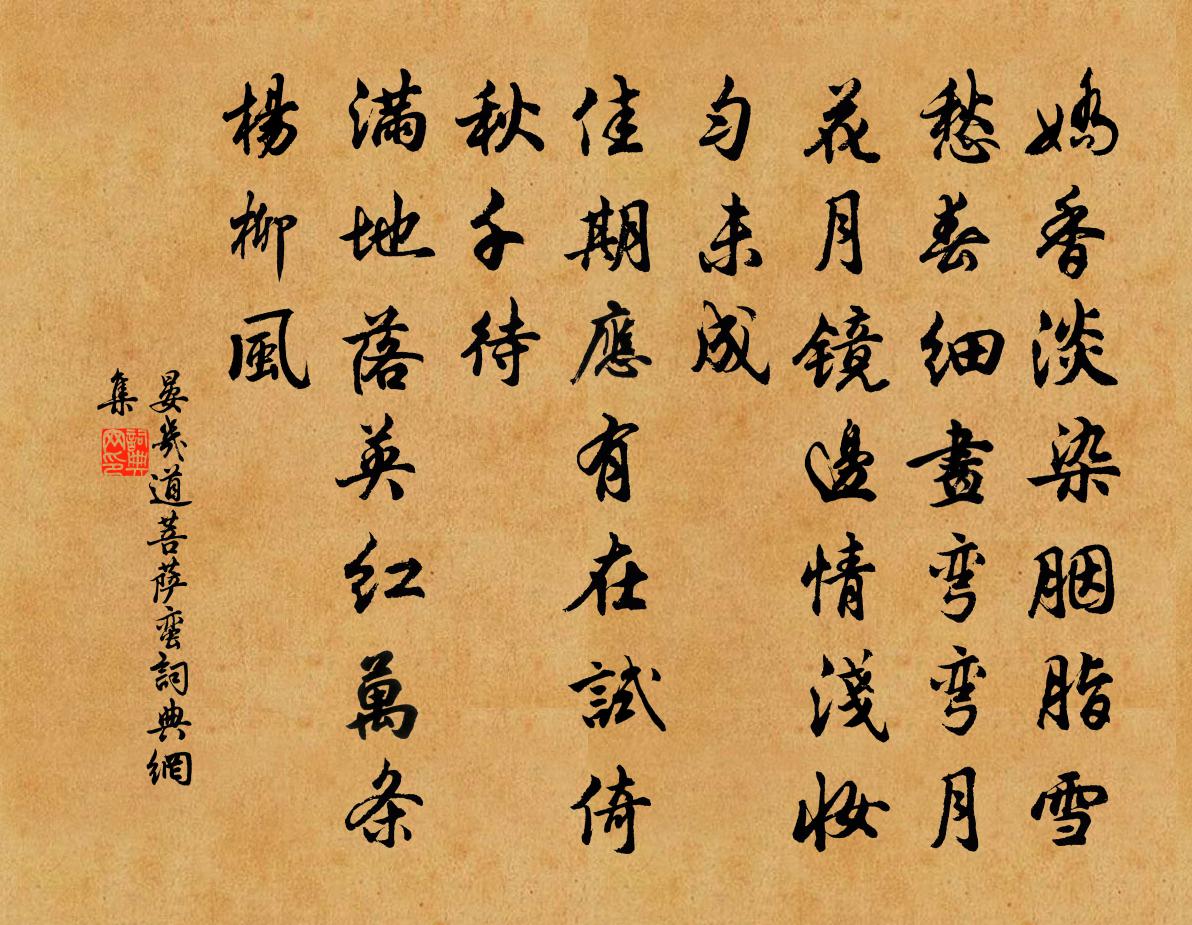 嬌香淡染胭脂雪
愁春細畫弯弯月
花月鏡邊情淺妝
匀未成
佳期應有在試倚
秋千待
满地落英红萬条
楊柳風
晏幾道菩萨蛮詞典網
集
詞典
网印